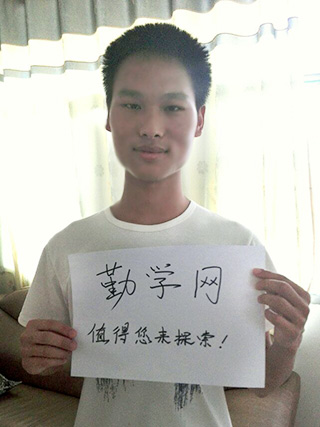 勤学网
值得您来探索!